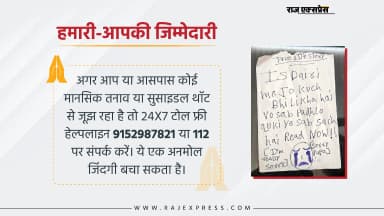 राज एक्सप्रेस
हमारी-आपकी जिम्मेदारी
अगर आप या आसपास कोई
मानसिक तनाव या सुसाइडल थॉट
से जूझ रहा है तो 24X7 टोल फ्री
हेल्पलाइन 9152987821 या 112
पर संपर्क करें। ये एक अनमोल
जिंदगी बचा सकता है।
Is Dairi
me Jo kuch
Bhi Likha hai
vo sab Padhlo
vo sab sach
hai Read Now!!
WWW.RAJEXPRESS.COM